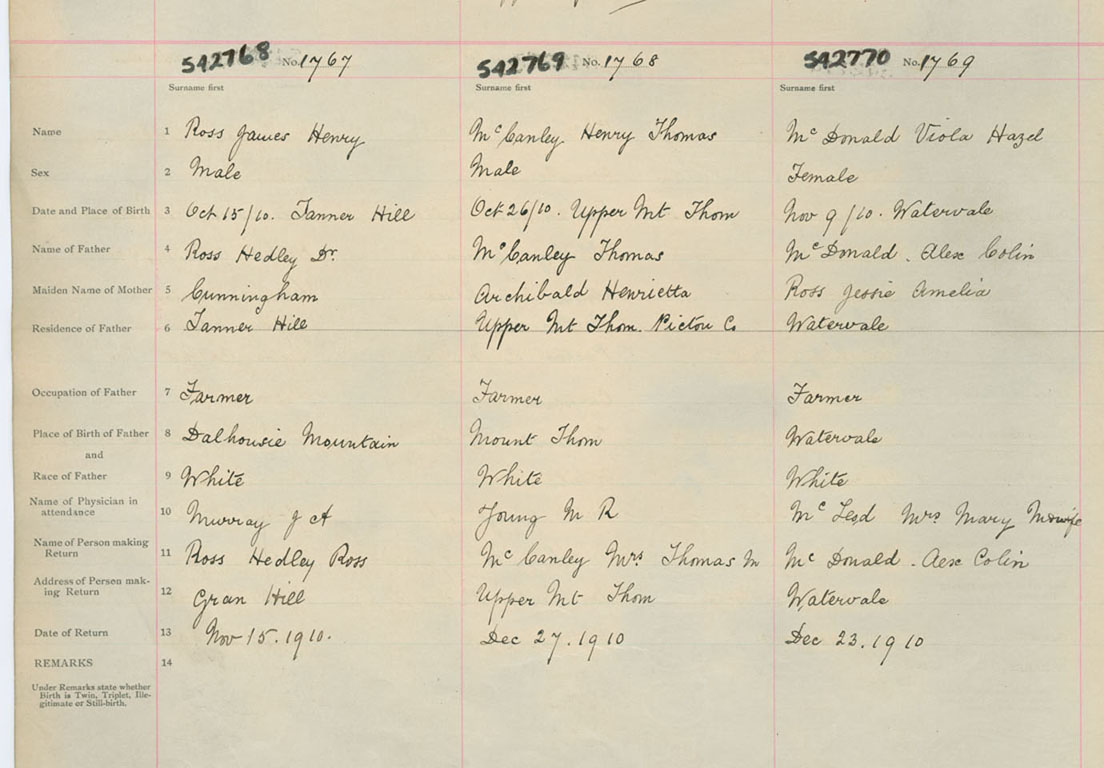 542768 No. 1767 542769 No. 1768 542770 No. 1769
Surname first Surname first Surname first
Name 1 Ross James Henry McCanley Henry Thomas McDonald Viola Hazel
Sex 2 Male Male Female
Date and Place of Birth 3 Oct 15/10. Tanner Hill Oct 26/10. Upper Mt Thom Nov 9/10. Watervale
Name of Father 4 Ross Hedley D. McCanley Thomas McDonald. Alex Colin
Maiden Name of Mother 5 Cunningham Archibald Henrietta Ross Jessie Amelia
Residence of Father 6 Tanner Hill Upper Mt Thom. Pictou Co Watervale
Occupation of Father 7 Farmer Farmer Farmer
Place of Birth of Father 8 Dalhousie Mountain Mount Thom Watervale
and
Race of Father 9 White White White
Name of Physician in
attendance 10 Murray J A Young M R Mrs Mary
Name of Person making
Return 11 Ross Hedley Ross McCanley Mrs. Thomas M McDonald. Aex Colin
Address of Person mak-
ing Return 12 Hill Upper Mt Thom Watervale
Date of Return 13 Nov 15. 1910. Dec 27. 1910 Dec 23. 1910
REMARKS 14
Under Remarks state whether
Birth is Twin, Triplet, Ille-
gitimate or Still-birth.